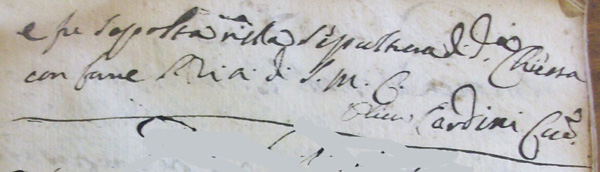 e fu sepolta nella sepultura di d.a Chiesa
con fune di S. M. C.
Cardini Cur.